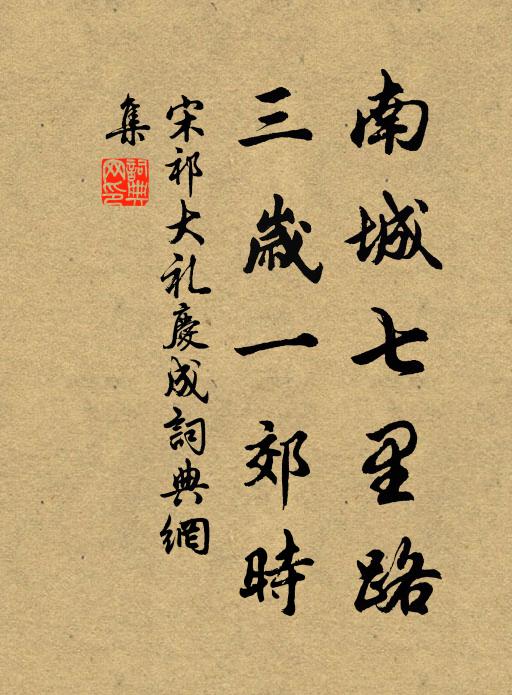 南城七里路
三歲一郊時
宋祁大礼慶成詞典網
集
詞典
网印